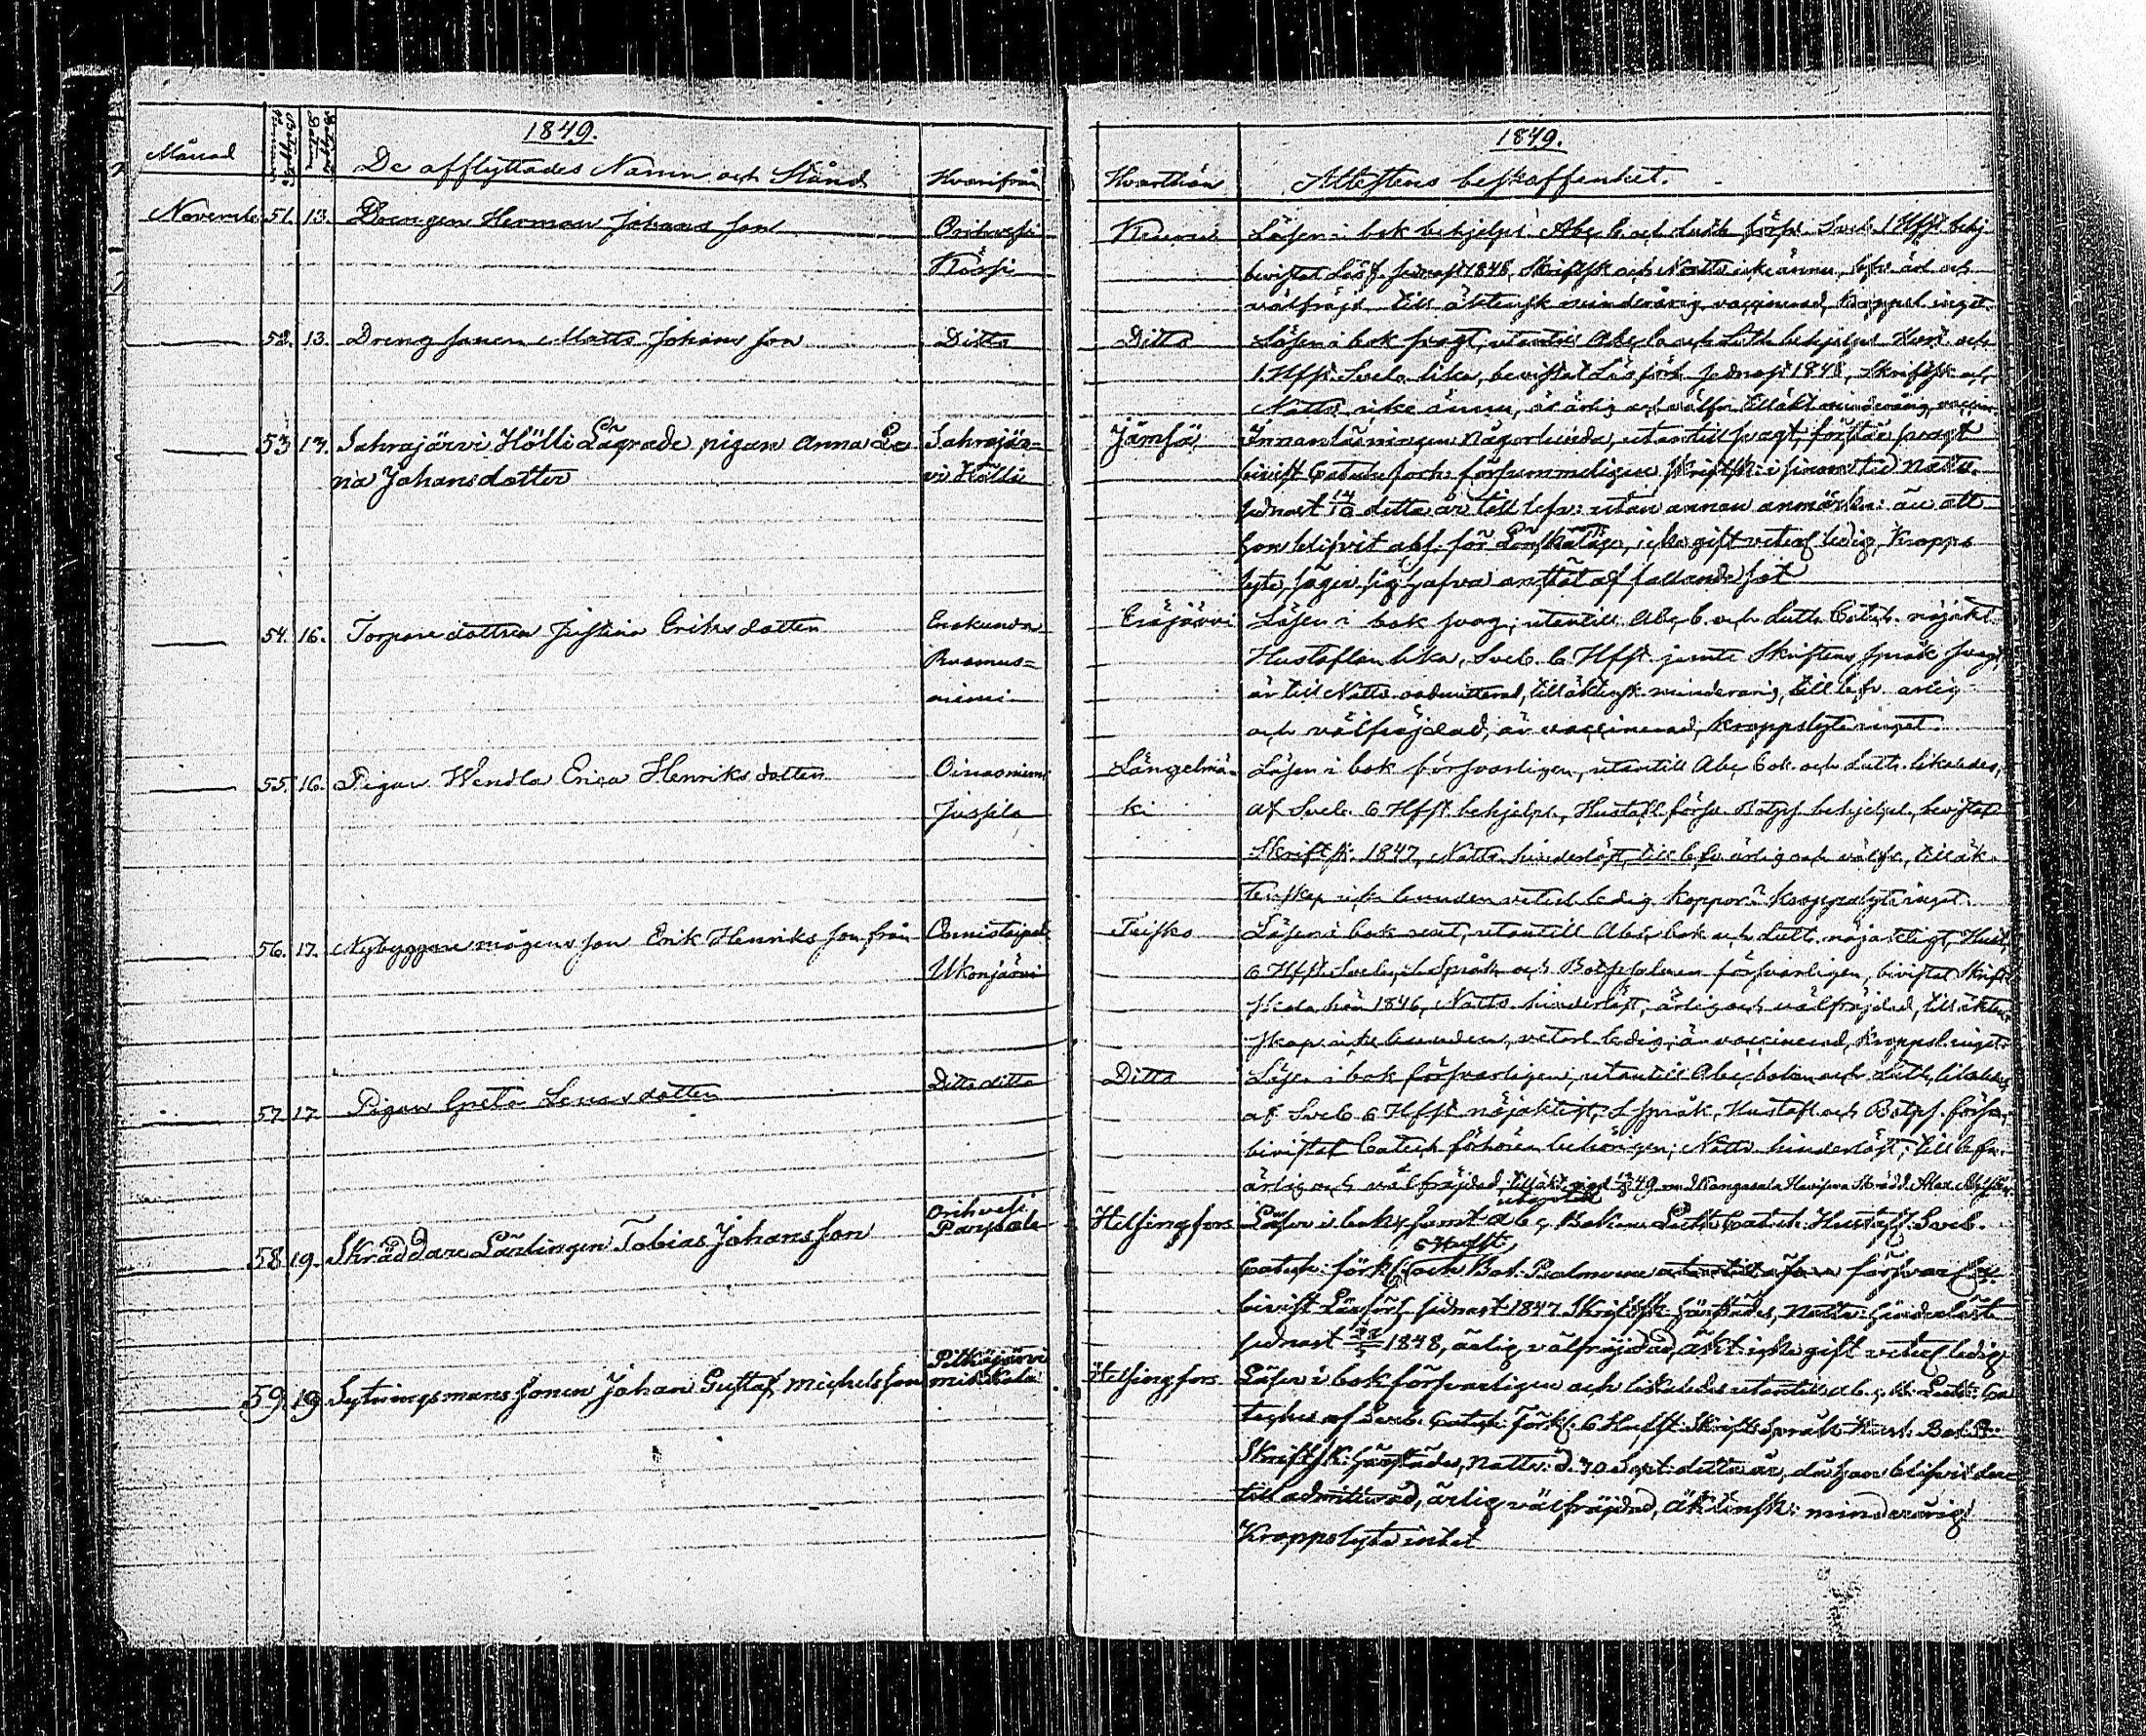 1849.
Månad
De afflyttades Namn och Stånd
Hvarifrån
November 51. 13. Drengen Herman Johansson
Orihvesi
52. 13. Drengsonen Matts Johansson
Ditto
53 13. Sahrajärvi Hölli Lägrade pigan Anna Le
na Johansdotter
Sahrajär=
vi Hölli
54. 16. Torparedottren Justina Eriksdotter
Erakunda
Rasmus=
niemi
55. 16. Pigan Wendla Erica Henriksdotter
Jussila
56. 17. Nybyggare mågens son Erik Henriksson från
Ukonjärvi
57. 17 Pigan Greta Lenasdotter
Ditto ditto
58. 19. Skräddare Lärlingen Tobias Johansson
Orihvesi
Parpala
59. 19 Sytningsmans sonen Johan Gustaf Michelsson
Pitkäjärvi
mikkola
1849.
Hvarthän
Attestens beskaffenhet.
Keuru
Läser i bok behjelpl. Abc b. och Luth. försv. Sveb. 1 Hfst behj
bevistat Läsf. sednast 1848, Skriftsk och Nattv. icke ännu,
välfräjd. till äktensk minderårig, vaccinerad, kroppsl inget.
Ditto
Läser i bok svagt, utantill Abc, bo och Luth behjelpl. Hust. och
1. Hfst. Sveb. lika, bevistat Läsförh. sednast 1848, Skriftsk och
Nattv. icke ännu, är ärlig och välfr. till äkt minderårig, vaccin
Jämsä
Innanläsningen någorlunda, utantill svagt, förstår svagt
bivist Catech förh: försummeligen, skriftsk: i sinom tid Nattv.
sednast 14/10 detta år till lefv: utan annan anmärkn: än att
hon blifvit abs. för Lönskaläge, icke gift veterl ledig, Kropps
lyte, säger sig hafva anstöt af fallande sot
Eräjärvi
Läser i bok svag, utantill Abc b och Luth. Catech. nöjakt.
Hustaflan lika, Sveb. 6 Hfst jemte Skriftens språk svagt,
är till Nattv. admitterad, till äktensk minderårig, till lefv. ärlig
och välfräjdad, är vaccinerad, kroppslyte inget.
Längelmä-
ki
Läser i bok försvarligen, utantill Abc bok och Luth. likaledes,
af Sveb. 6 Hfst. behjelpl., Hustafl. försv. Botps. behjelpl., bevistat
Skriftsk. 1847, Nattv. hinderlöst, till lefv ärlig och välfr., till äk-
tenskap icke bunden veterl. ledig koppor? kroppslyte inget.
Teisko
Läser i bok rent, utantill Abc, bok och Luth. nöjaktligt, Hust,
6 Hfst. Sveb., Språk och Botpsalmer försvarligen, bivistat Skrift-
skola här 1846, Nattv. hinderlöst, ärlig och välfräjdad, till äkten-
skap icke bunden, veterl ledig, är vaccinerad, Kroppsl inget.
Ditto
Läser i bok försvarligen, utantill Abc, boken och Luth. likaledes,
af Sveb. 6 Hfst nöjaktligt, S språk, Hustafl och Botps. försv.,
bivistat Catech förhören behörigen, Nattv. hinderlöst, till lefv.
ärlig och välfräjdad,
Helsingfors
utantill
Läser i bok, samt abc, Boken Luth: Catech: Hustafl: Sveb.
6 Hufst.
Catech: förkl: och Bot. Psalmerne försvarl.
bivist Läsförh sednast 1847. Skriftsk: härstädes, Nattv: hinderlöst
sednast 1848, ärlig, välfräjdad, äkt. icke gift veterl ledig
Helsingfors
Läser i bok försvarligen och likaledes utantill abc, b. Luth: Ca
teches af Sveb. Catech: Förkl. 6 Hufst. Skrifts Språk Hust. Bot. P.
Skriftsk: härstädes, Nattv: d. 30 Sept: detta år, då han blifvit der
till admitterad, ärlig välfräjdad, äktensk: minderårig
Kroppslyte intet